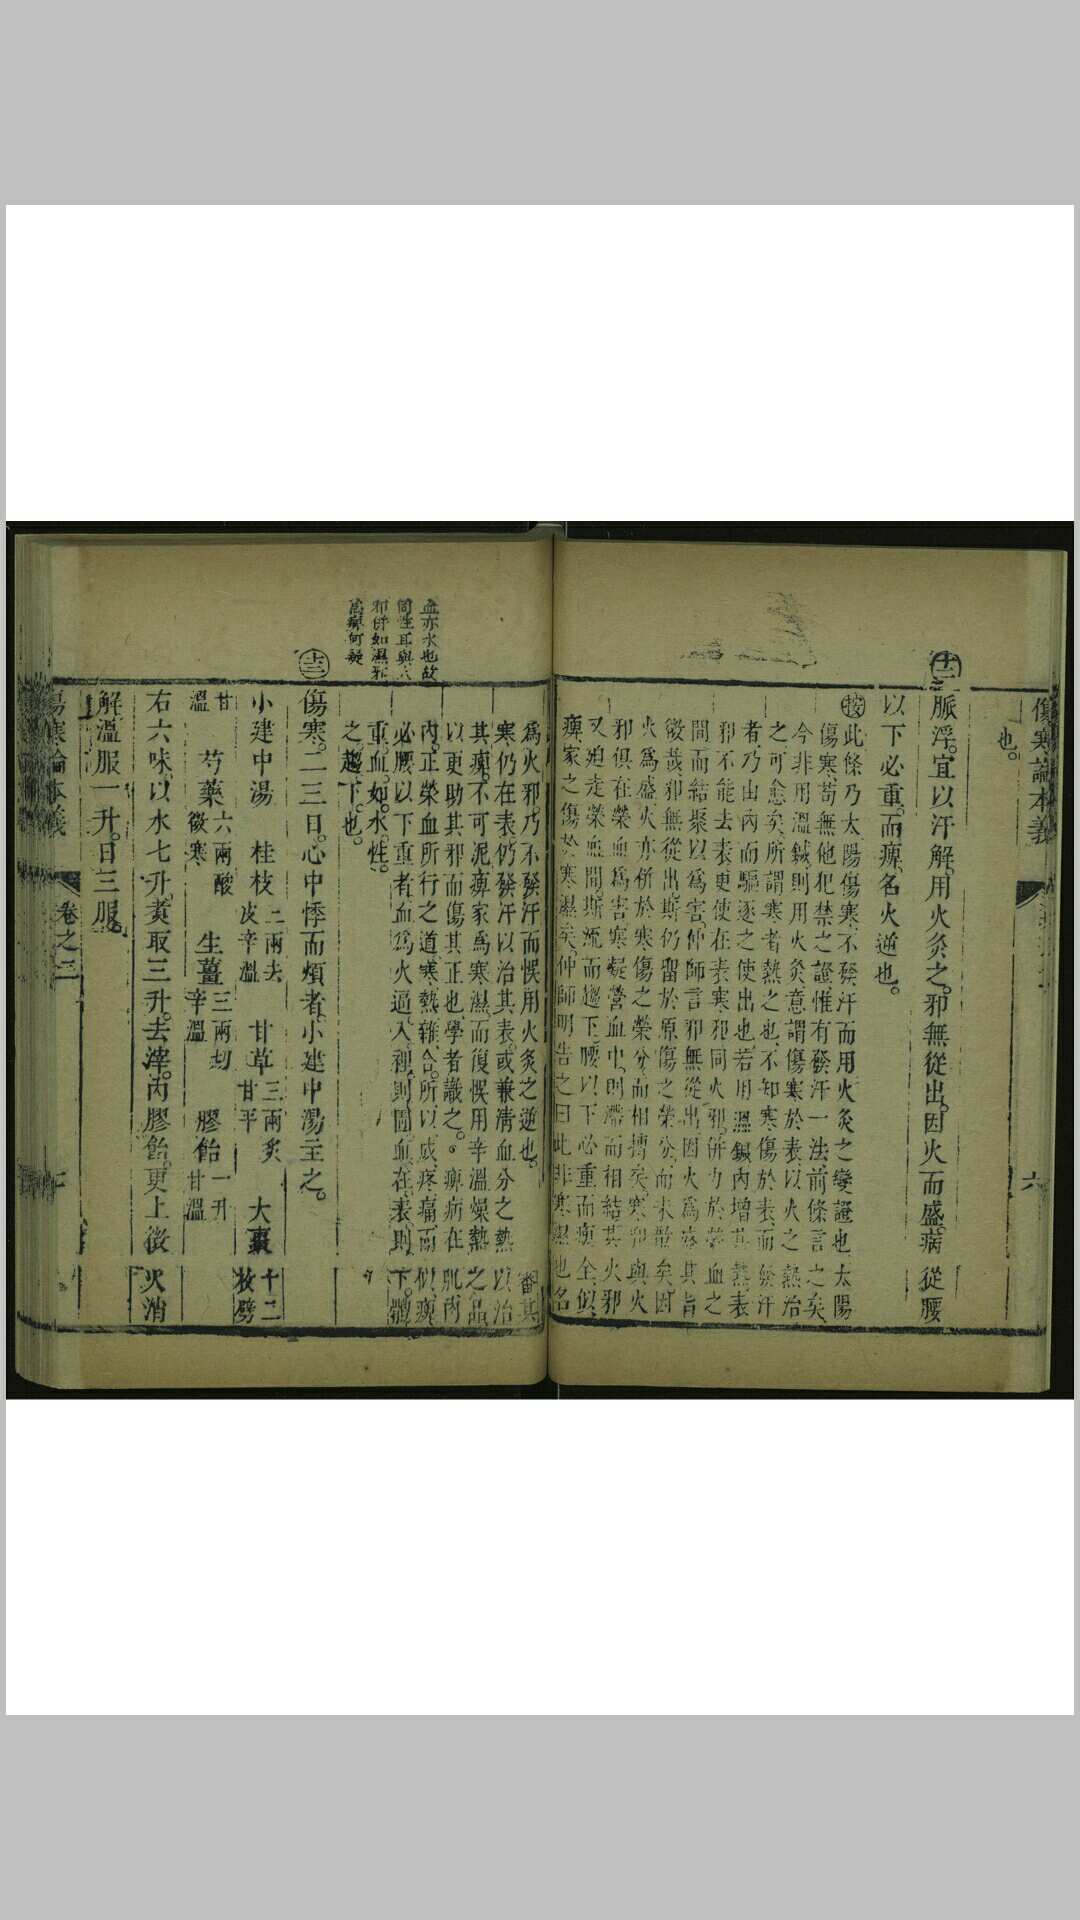 傷寒論本義
六
也。
十二
脈浮。宜以汗解。用火灸之。邪無從出。因火而盛。病從腰
以下必重。而痺。名火逆也。
按此條乃太陽傷寒。不發汗而用火灸之變證也。太陽
傷寒。苟無他犯禁之證。惟有發汗一法。前條言之矣。
今非用溫鍼。則用火灸。意謂傷寒於表。以火之熱治
之可愈矣。所謂寒者熱之也。不知寒傷於表。而發汗
者。乃由內而驅逐之使出也。若用溫鍼內增其熱。表
邪不能去表。更使在表寒邪同火邪。併力於榮血之
間而結聚以為害。仲師言邪無從出。因火為盛。其旨
微哉。邪無從出。斯仍留於原傷之榮分。而未散矣。因
火為盛。火亦併於寒傷之榮分。而相摶矣。寒邪與火
邪俱在榮血為害。寒凝營血中。則滯而相結。其火邪
又迫走榮血間。斯流而趨下。腰以下必重而痺。全似
痺家之傷於寒濕矣。仲師明告之曰。此非寒濕也。名
為火邪。乃不發汗而悞用火灸之逆也。審其
寒仍在表。仍發汗以治其表。或兼清血分之熱以治
其痺。不可泥痺家為寒濕。而復悞用辛溫燥熱之品
以更助其邪而傷其正也。學者識之。。痺病在肌肉
內。正榮血所行之道。寒熱雜合。所以成疼痛。而似痺
必腰以下重者。血為火逼。入裡則圊血。在表則下體
重。血。如。水。性。
之趨下。也。
血亦水也故
同性耳與火
邪併如濕邪
為痺何疑
十三
傷寒。二三日。心中悸而煩者。小建中湯主之。
小建中湯 桂枝二兩去皮辛溫 甘草三兩炙甘平 大棗十二枚劈
甘溫 芍藥六兩酸微寒 生薑三兩切辛溫 膠飴一升甘溫
右六味。以水七升。煮取三升。去滓。內膠飴。更上微火消
解。溫服一升。日三服。
傷寒論本義
卷之三